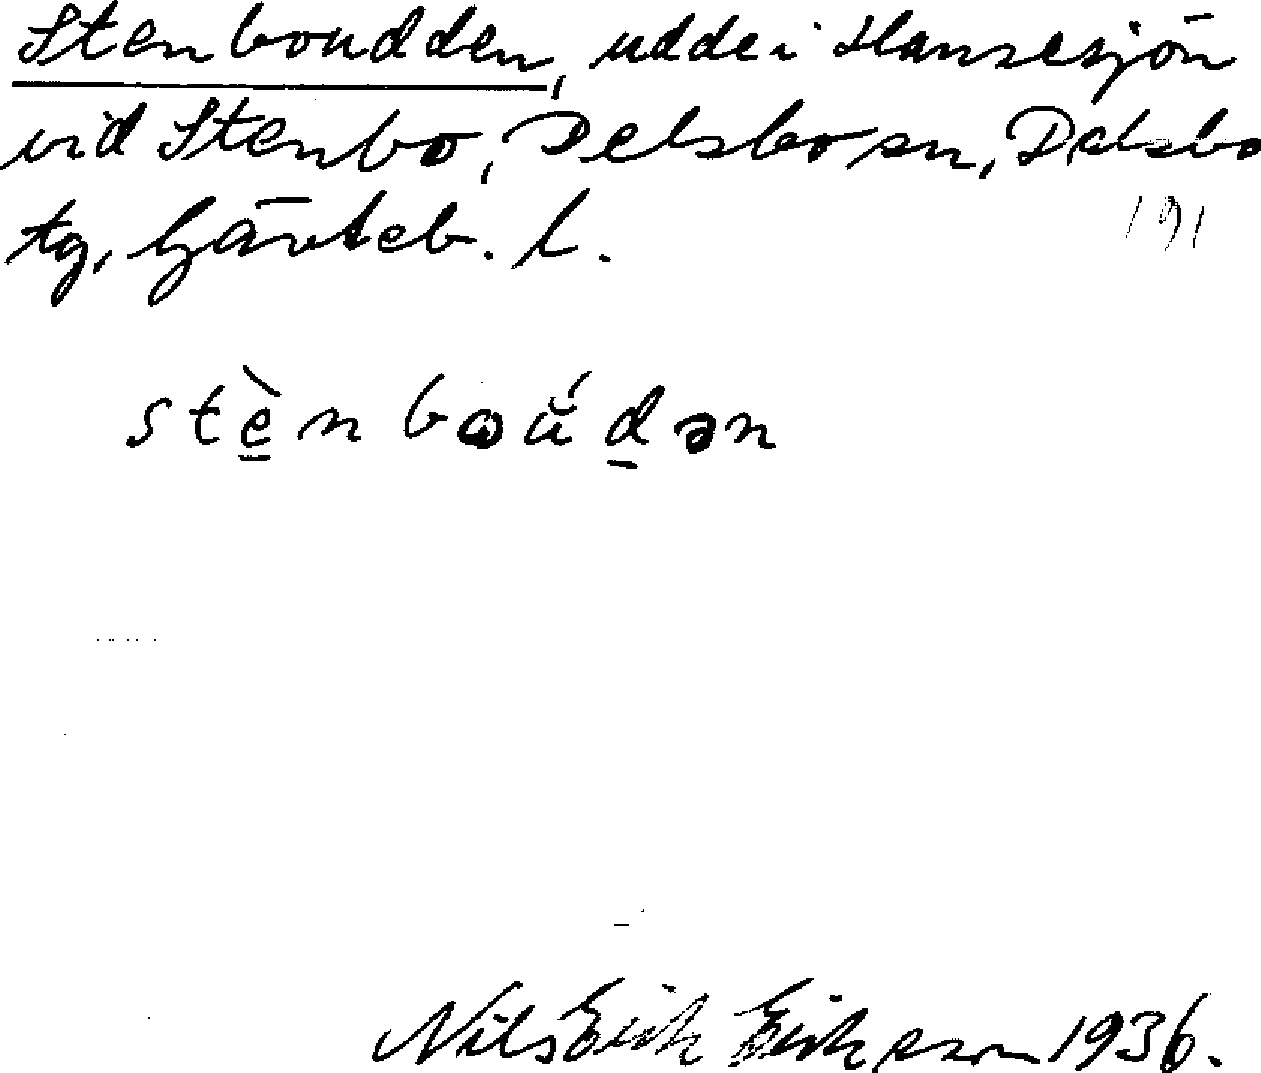 Stenboudden, udde i Hansesjön
vid Stenbo, Delsbo sn, Delsbo
tg, Gävleb. l.
191
stè̱nbωŭ́d̠ən
Nils Erik Erikson 1936.